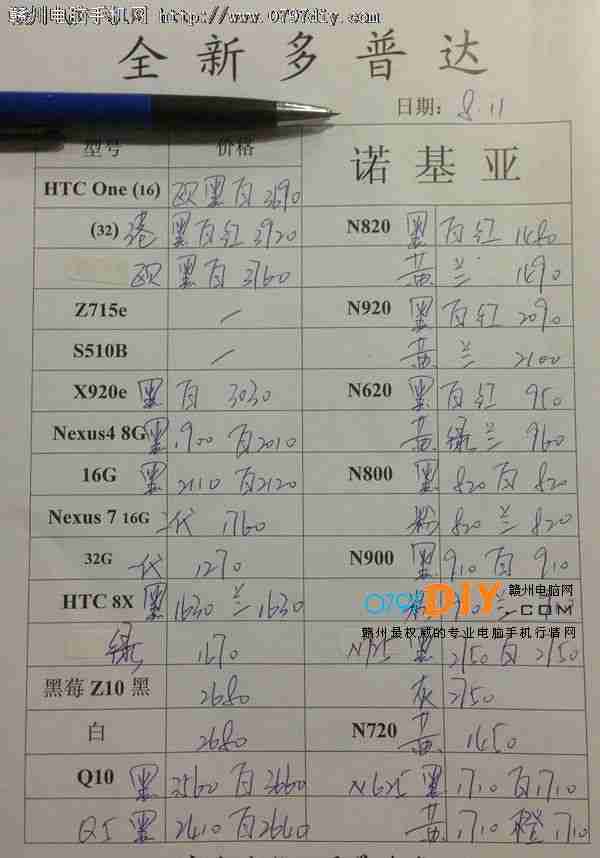 赣州电脑手机网 http://www.0797diy.com
全新多普达
日期: 8.11
型号 价格 诺基亚
HTC One (16) 欧黑白 3690
(32) 港 黑白红 3920 N820 黑 白红 1480
欧 黑白 3760 黄 兰 1490
Z715e — N920 黑 白红 2090
S510B — 黄 兰 2100
X920e 黑 白 3030 N620 黑 白红 950
Nexus4 8G 黑 1900 白 2010 黄 绿兰 960
16G 黑 2110 白 2120 N800 黑 820 白 820
Nexus 7 16G 二代 1760 粉 820 兰 820
32G 一代 1270 N900 黑 910 白 910
HTC 8X 黑 1630 兰 1630
0797DIY.COM 赣州电脑网
赣州最权威的专业电脑手机行情网
绿 1670 N925 黑 2150 白 2150
黑莓 Z10 黑 2680 灰 2150
白 2680 N720 黄 1450
Q10 黑 3560 白 3660 N625 黑 1710 白 1710
Q5 黑 2410 白 2640 黄 1710 橙 1710